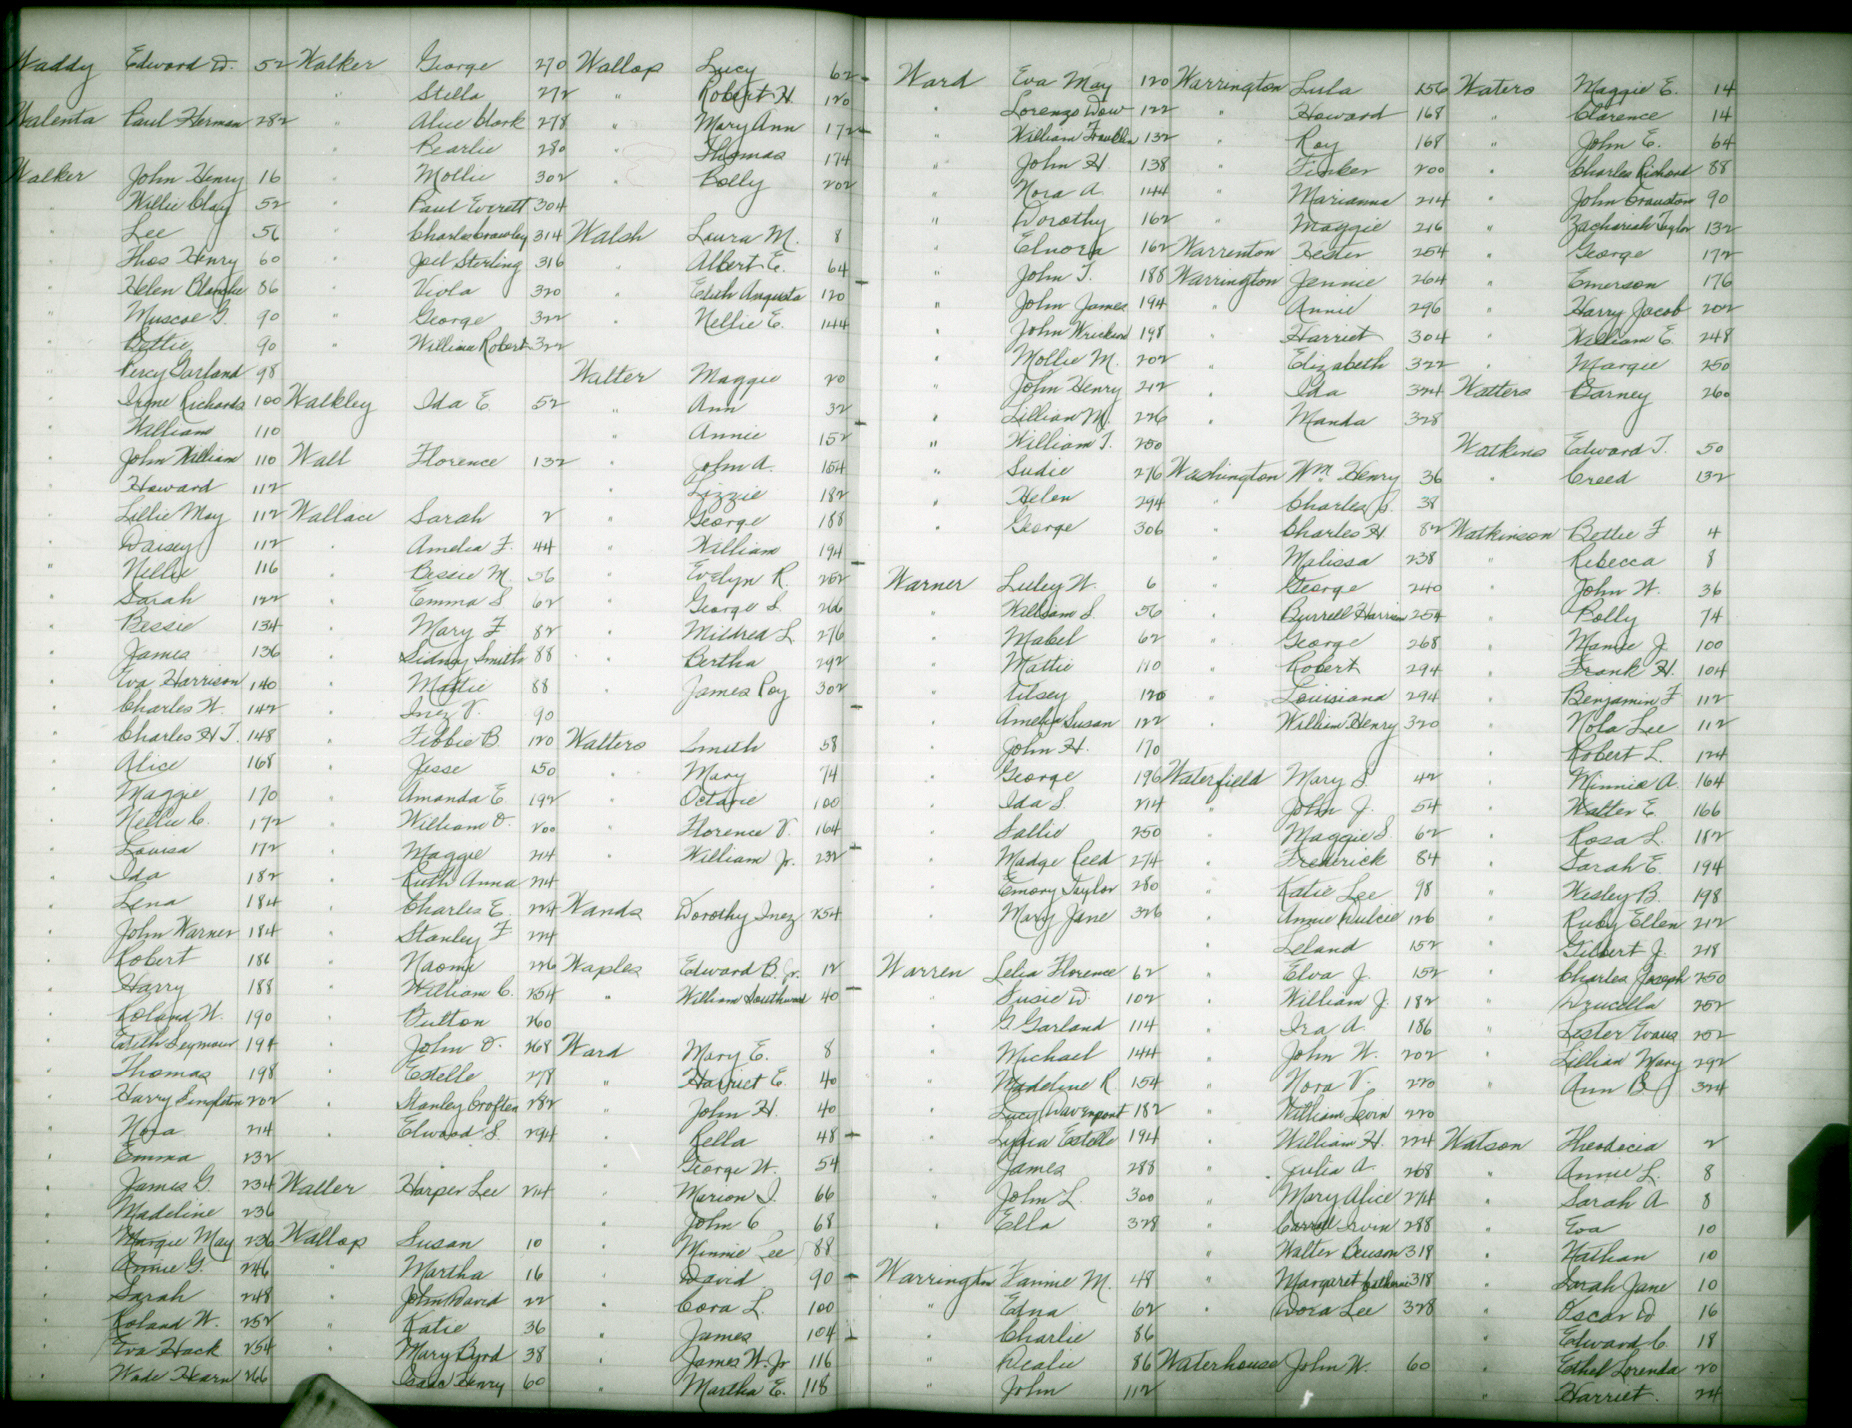 Waddy Edward D. 52
Walenta Paul Herman 282
Walker John Henry 16
" Willie Clay 52
" Lee 56
" Thos Henry 60
" Helen Blanche 86
" Muscoe G. 90
" Bettie 90
" Percy Garland 98
" Irene Richards 100
" William 110
" John William 110
" Howard 112
" Lillie May 112
" Daisey 112
" Nellie 116
" Sarah 122
" Bessie 134
" James 136
" Eva Harrison 140
" Charles W. 142
" Charles H T. 148
" Alice 168
" Maggie 170
" Nellie C. 172
" Louisa 172
" Ida 182
" Lena 184
" John Warner 184
" Robert 186
" Harry 188
" Roland W. 190
" Edith Seymour 194
" Thomas 198
" Harry Singleton 202
" Nora 214
" Emma 232
" James G. 234
" Madeline 236
" Margie May 236
" Annie G. 246
" Sarah 248
" Roland W. 252
" Eva Hack 254
" Wade Hearn 266
Walker George 270
" Stella 272
" Alice Clark 278
" Pearlie 280
" Mollie 302
" Paul Everett 304
" Charles Crowley 314
" Joel Sterling 316
" Viola 320
" George 322
" William Robert 322
Walkley Ida E. 52
Wall Florence 132
Wallace Sarah 2
" Amelia F. 44
" Bessie M. 56
" Emma S. 62
" Mary F. 82
" Sidney Smith 88
" Mattie 88
" Inez V. 90
" Tibbie B. 120
" Jesse 150
" Amanda E. 192
" William O. 200
" Maggie 214
" Ruth Anna 214
" Charles E. 224
" Stanley F. 224
" Naomi 226
" William C. 254
" Button 260
" John O. 268
" Estelle 278
" Stanley Croften 282
" Elwood S. 294
Waller Harper Lee 214
Wallop Susan 10
" Martha 16
" John David 22
" Katie 36
" Mary Byrd 38
" Isaac Henry 60
Wallop Lucy 62
" Robert H. 120
" Mary Ann 172
" Thomas 174
" Polly 202
Walsh Laura M. 8
" Albert E. 64
" Edith Augusta 120
" Nellie E. 144
Walter Maggie 20
" Ann 32
" Annie 152
" John A. 154
" Lizzie 182
" George 188
" William 194
" Evelyn R. 252
" George S. 266
" Mildred L. 276
" Bertha 292
" James Roy 302
Walters Smith 58
" Mary 74
" Octavie 100
" Florence V. 164
" William Jr. 232
Wands Dorothy Inez 254
Waples Edward B. Jr. 12
" William Southwood 40
Ward Mary E. 8
" Harriet E. 40
" John H. 40
" Rella 48
" George W. 54
" Marion J. 66
" John C 68
" Minnie Lee 88
" David 90
" Cora L. 100
" James 104
" James W. Jr 116
" Martha E. 118
Ward Eva May 120
" Lorenzo Dow 122
" William Franklin 132
" John H. 138
" Nora A. 144
" Dorothy 162
" Elnora 162
" John T. 188
" John James 194
" John Wrickson 198
" Mollie M. 202
" John Henry 212
" Lillian M. 226
" William T. 250
" Sudie 276
" Helen 294
" George 306
Warner Lesley W. 6
" William S. 56
" Mabel 62
" Mattie 110
" Tilsey 120
" Amelia Susan 122
" John H. 170
" George 196
" Ida S. 214
" Sallie 250
" Madge Reed 274
" Emory Taylor 280
" Mary Jane 326
Warren Lelia Florence 62
" Susie D. 102
" G. Garland 114
" Michael 144
" Madeline R. 154
" Lucy Davenport 182
" Lydia Estelle 194
" James 288
" John L. 300
" Ella 328
Warrington Fannie M. 48
" Edna 62
" Charlie 86
" Dealie 86
" John 112
Warrington Lula 156
" Howard 168
" Roy 168
" Tinker 200
" Marianna 214
" Maggie 216
Warrenton Hester 254
Warrington Jennie 264
" Annie 296
" Harriet 304
" Elizabeth 322
" Ida 324
" Manda 328
Washington Wm. Henry 36
" Charles S. 38
" Charles H. 82
" Malissa 238
" George 240
" Burrell Harrison 254
" George 268
" Robert 294
" Louisiana 294
" William Henry 320
Waterfield Mary S. 42
" John J. 54
" Maggie S. 62
" Frederick 84
" Katie Lee 98
" Annie Dulcie 126
" Leland 152
" Elva J. 152
" William J. 182
" Ira A. 186
" John W. 202
" Nora V. 220
" William Levin 220
" William H. 224
" Julia A. 268
" Mary Alice 274
" Carroll Irvin 288
" Walter Benson 318
" Margaret Catherine 318
" Dora Lee 328
Waterhouse John W. 60
Waters Maggie E. 14
" Clarence 14
" John E. 64
" Charles Richard 88
" John Braudom 90
" Zachariah Taylor 132
" George 172
" Emerson 176
" Harry Jacob 202
" William E. 248
" Margie 250
Watters Barney 260
Watkins Edward T. 50
" Creed 132
Watkinson Bettie F 4
" Rebecca 8
" John W. 36
" Polly 74
" Mamie J. 100
" Frank H. 104
" Benjamin F 112
" Nola Lee 112
" Robert L. 124
" Minnie A. 164
" Walter E. 166
" Rosa L. 182
" Sarah E. 194
" Wesley B. 198
" Ruby Ellen 212
" Gilbert J. 218
" Charles Joseph 250
" Drucilla 252
" Lester Evans 252
" Lillian Mary 292
" Ann B. 324
Watson Theodocia 2
" Annie L. 8
" Sarah A. 8
" Eva 10
" Nathan 10
" Sarah Jane 10
" Oscar D 16
" Edward C. 18
" Ethel Lorenda 20
" Harriet. 24